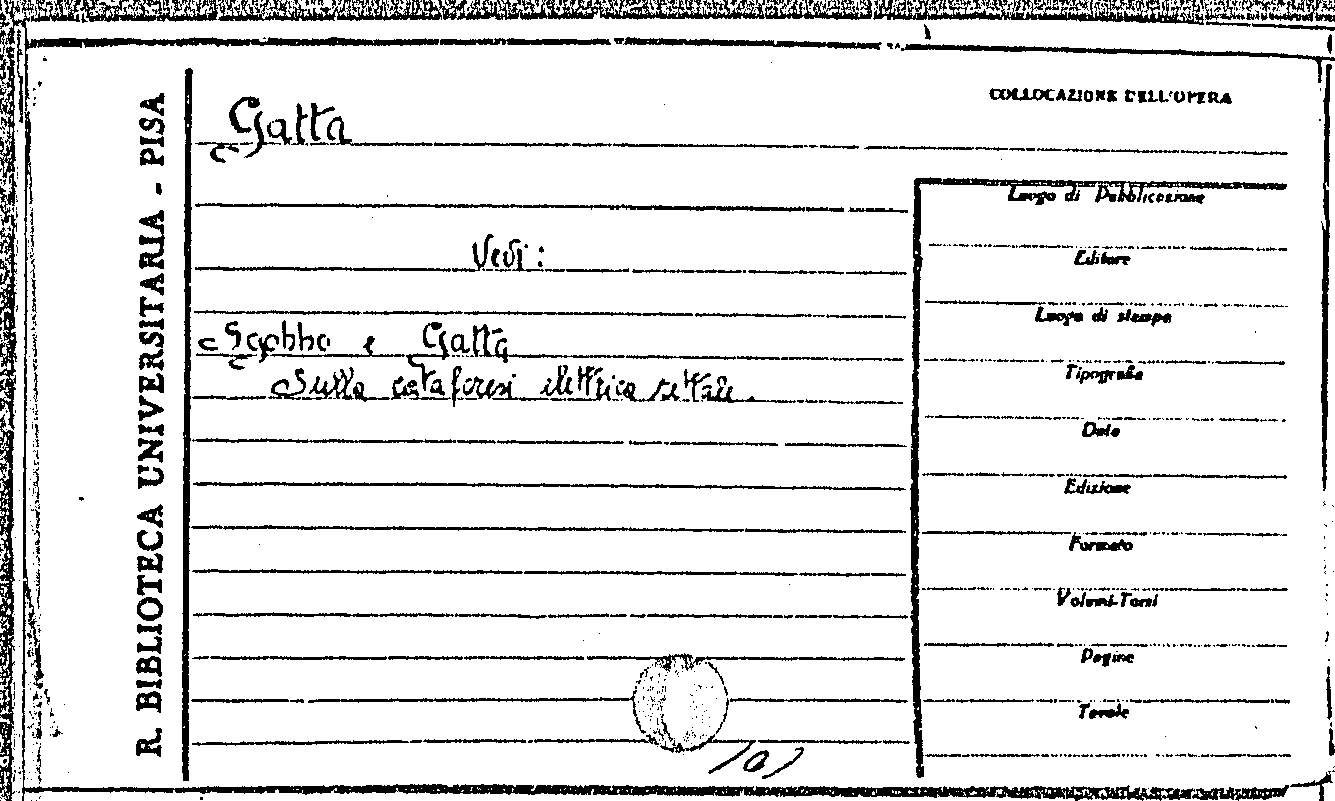 R. BIBLIOTECA UNIVERSITARIA - PISA
COLLOCAZIONE DELL'OPERA
Gatta
Vedi:
Sgobbo e Gatta
Sulla cataforesi elettrica rettale.
Luogo di Pubblicazione
Editore
Luogo di stampa
Tipografia
Data
Edizione
Formato
Volumi-Tomi
Pagine
Tavole